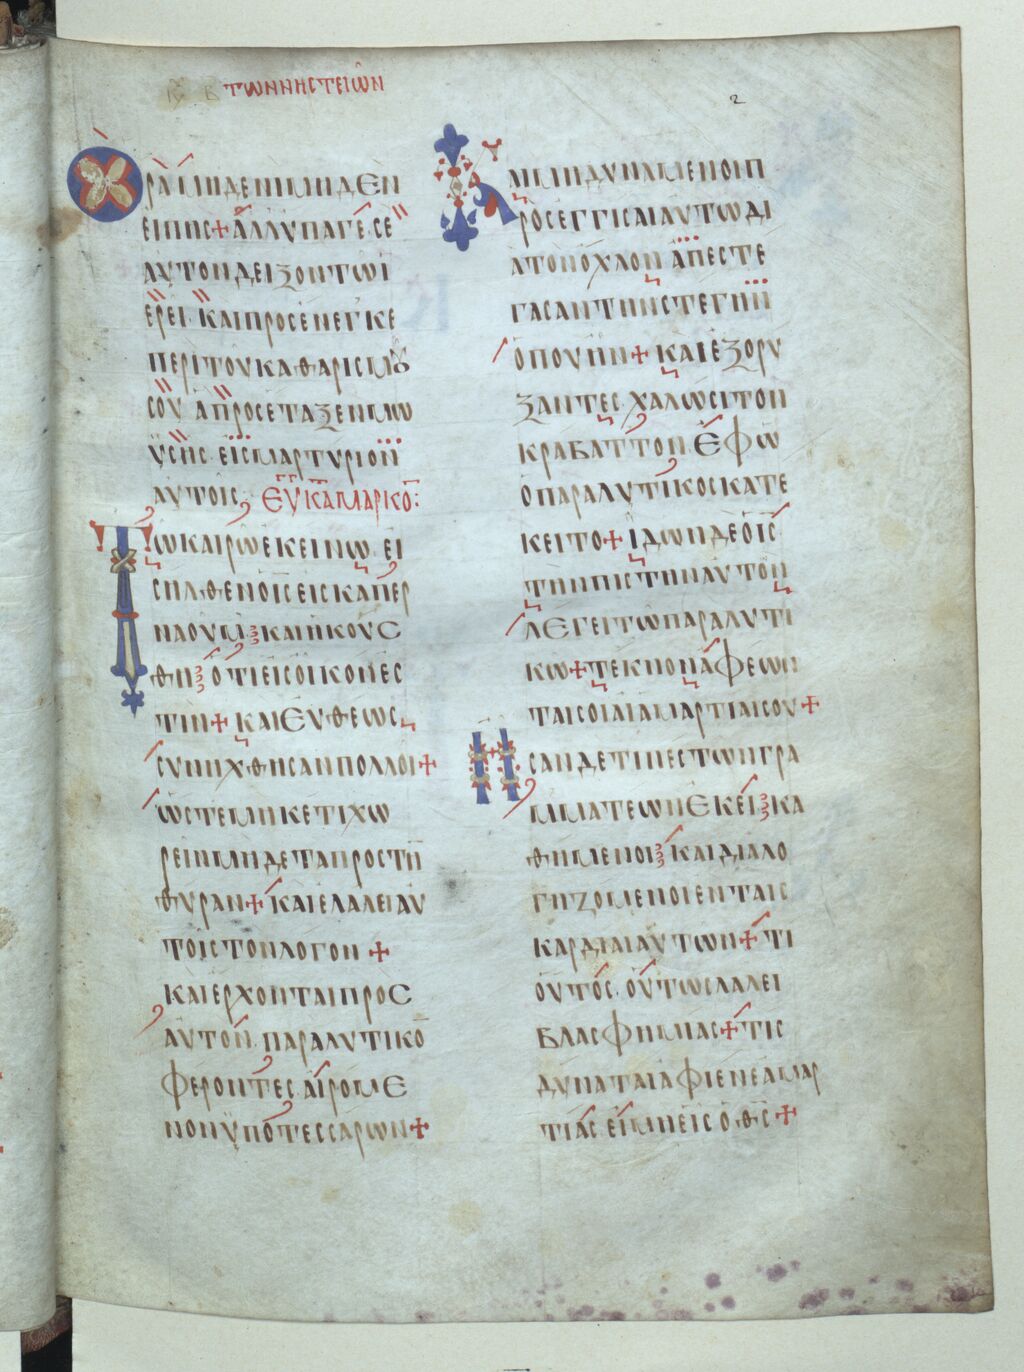 Κυ Β ΤΩΝΝΗΣΤΕΙΩΝ
2
ΟΡΑΜΗΔΕΝΙΜΗΔΕΝ
ΕΙΠΗΣ+ΑΛΛΥΠΑΓΕ.ΣΕ
ΑΥΤΟΝΔΕΙΞΟΝΤΩΙ
ΕΡΕΙ.ΚΑΙΠΡΟΣΕΝΕΓΚΕ
ΠΕΡΙΤΟΥΚΑΘΑΡΙΣΜȢ
ΣΟΥ ΑΠΡΟΣΕΤΑΞΕΝΜΩ
ΥΣΗΣ.ΕΙΣΜΑΡΤΥΡΙΟΝ
ΑΥΤΟΙΣ, ΕΥΚΑΜΑΡΚΟ:
ΤΩΚΑΙΡΩΕΚΕΙΝΩ.ΕΙ
ΣΗΛΘΕΝΟΙΣΕΙΣΚΑΠΕΡ
ΝΑΟΥΜ.ΚΑΙΗΚΟΥΣ
ΘΗ.ΟΤΙΕΙΣΟΙΚΟΝΕΣ
ΤΙΝ+ΚΑΙΕΥΘΕΩΣ
ΣΥΝΗΧΘΗΣΑΝΠΟΛΛΟΙ+
ΩΣΤΕΜΗΚΕΤΙΧΩ
ΡΕΙΝΜΗΔΕΤΑΠΡΟΣΤΗ
ΘΥΡΑΝ+ΚΑΙΕΛΑΛΕΙΑΥ
ΤΟΙΣΤΟΝΛΟΓΟΝ+
ΚΑΙΕΡΧΟΝΤΑΙΠΡΟΣ
ΑΥΤΟΝ.ΠΑΡΑΛΥΤΙΚΟ
ΦΕΡΟΝΤΕΣ.ΑΙΡΟΜΕ
ΝΟΝΥΠΟΤΕΣΣΑΡΩΝ+
ΚΑΙΜΗΔΥΝΑΜΕΝΟΙΠ
ΡΟΣΕΓΓΙΣΑΙΑΥΤΩΔΙ
ΑΤΟΝΟΧΛΟΝ.ΑΠΕΣΤΕ
ΓΑΣΑΝΤΗΝΣΤΕΓΗΝ
ΟΠΟΥΗΝ+ΚΑΙΕΞΟΡΥ
ΞΑΝΤΕΣ.ΧΑΛΩΣΙΤΟΝ
ΚΡΑΒΑΤΤΟΝ.ΕΦΩ
ΟΠΑΡΑΛΥΤΙΚΟΣΚΑΤΕ
ΚΕΙΤΟ+ΙΔΩΝΔΕΟΙΣ
ΤΗΝΠΙΣΤΗΝΑΥΤΟΝ
ΛΕΓΕΙΤΩΠΑΡΑΛΥΤΙ
ΚΩ+ΤΕΚΝΟΝΑΦΕΩΝ
ΤΑΙΣΟΙΑΙΑΜΑΡΤΙΑΙΣΟΥ+
ΗΣΑΝΔΕΤΙΝΕΣΤΩΝΓΡΑ
ΜΜΑΤΕΩΝΕΚΕΙ.ΚΑ
ΘΗΜΕΝΟΙ.ΚΑΙΔΙΑΛΟ
ΓΗΖΟΜΕΝΟΙΕΝΤΑΙΣ
ΚΑΡΔΙΑΙΑΥΤΩΝ+ΤΙ
ΟΥΤΟΣ.ΟΥΤΩΣΛΑΛΕΙ
ΒΛΑΣΦΗΜΙΑΣ+ΤΙΣ
ΔΥΝΑΤΑΙΑΦΙΕΝΕΑΜΑΡ
ΤΙΑΣ.ΕΙΜΗΕΙΣΟΘΣ+